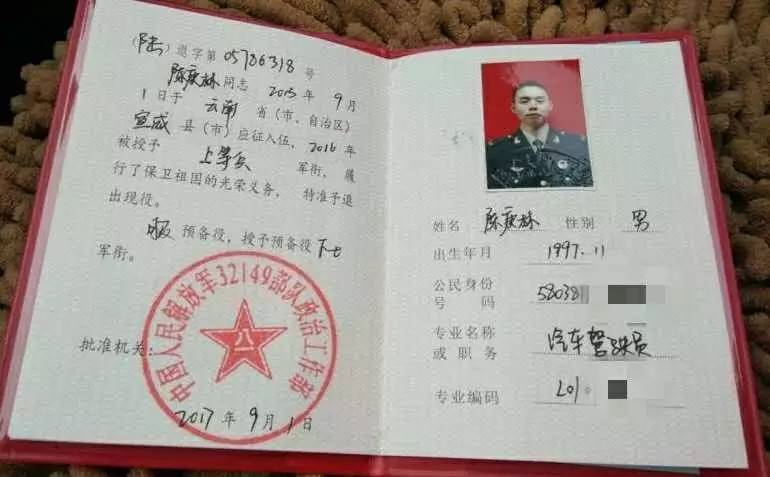 (陆)退字第05786318号
陈庆林同志 2015年9月
1日于 云南 省(市、自治区)
宣威 县(市)应征入伍，2016年
被授予 上等兵 军衔，履
行了保卫祖国的光荣义务，特准予退
出现役。
服 预备役，授予预备役 下士
军衔。
中国人民解放军32149部队政治工作部
八一
批准机关：
2017年9月1日
姓名 陈庆林 性别 男
出生年月 1997.11
公民身份
号码 580381
专业名称
或职务 汽车驾驶员
专业编码 201